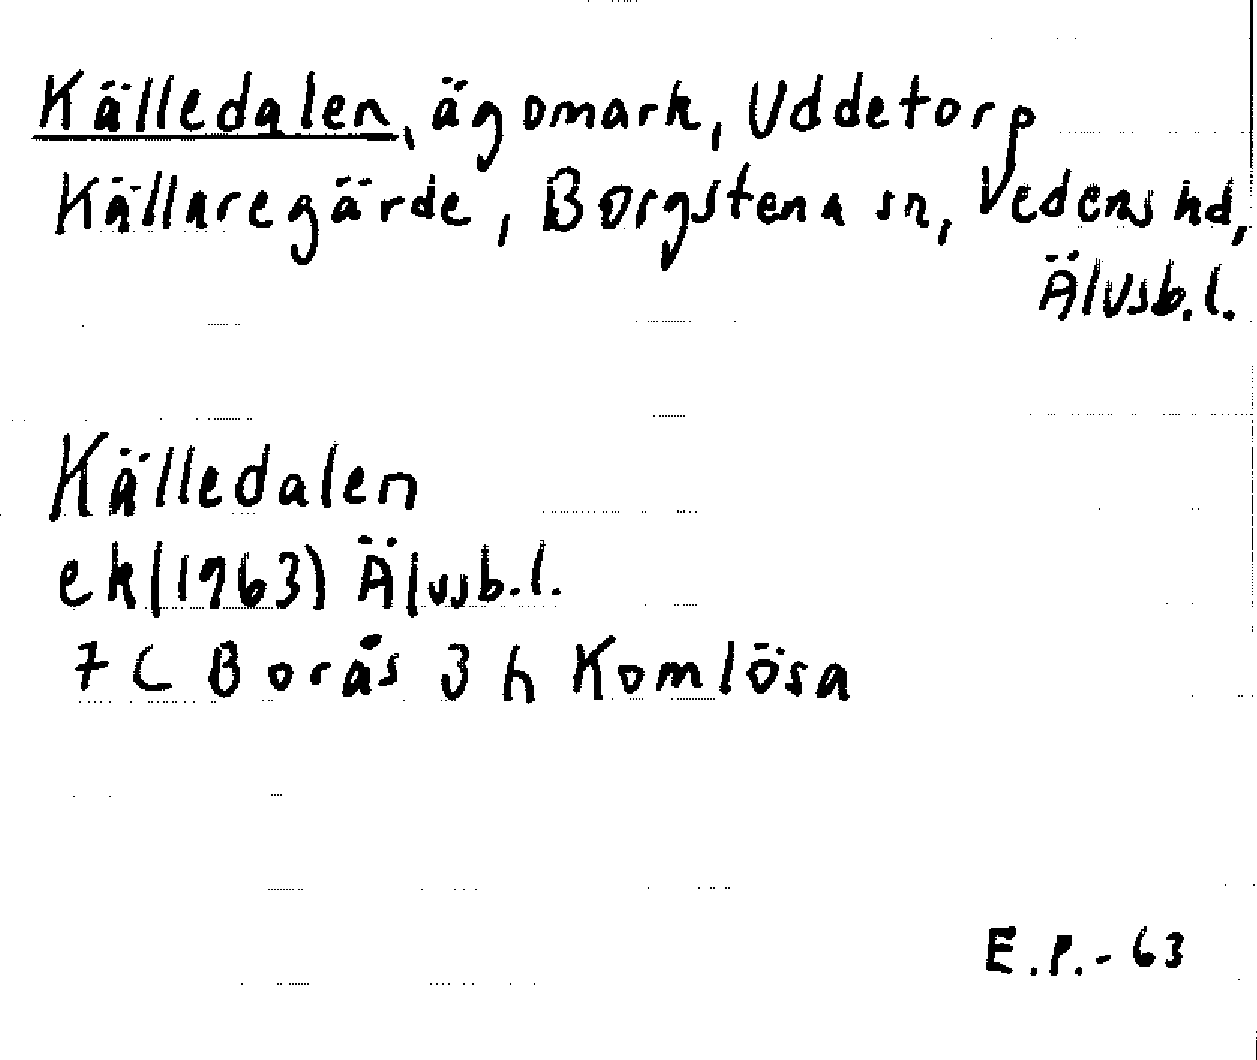 Källedalen, ägomark, Uddetorp
Källaregärde, Borgstena sn, Vedens hd,
Älvsb.l.
Källedalen
ek (1963) Älvsb.l.
7 C Borås 3 h Komlösa
E.P.-63